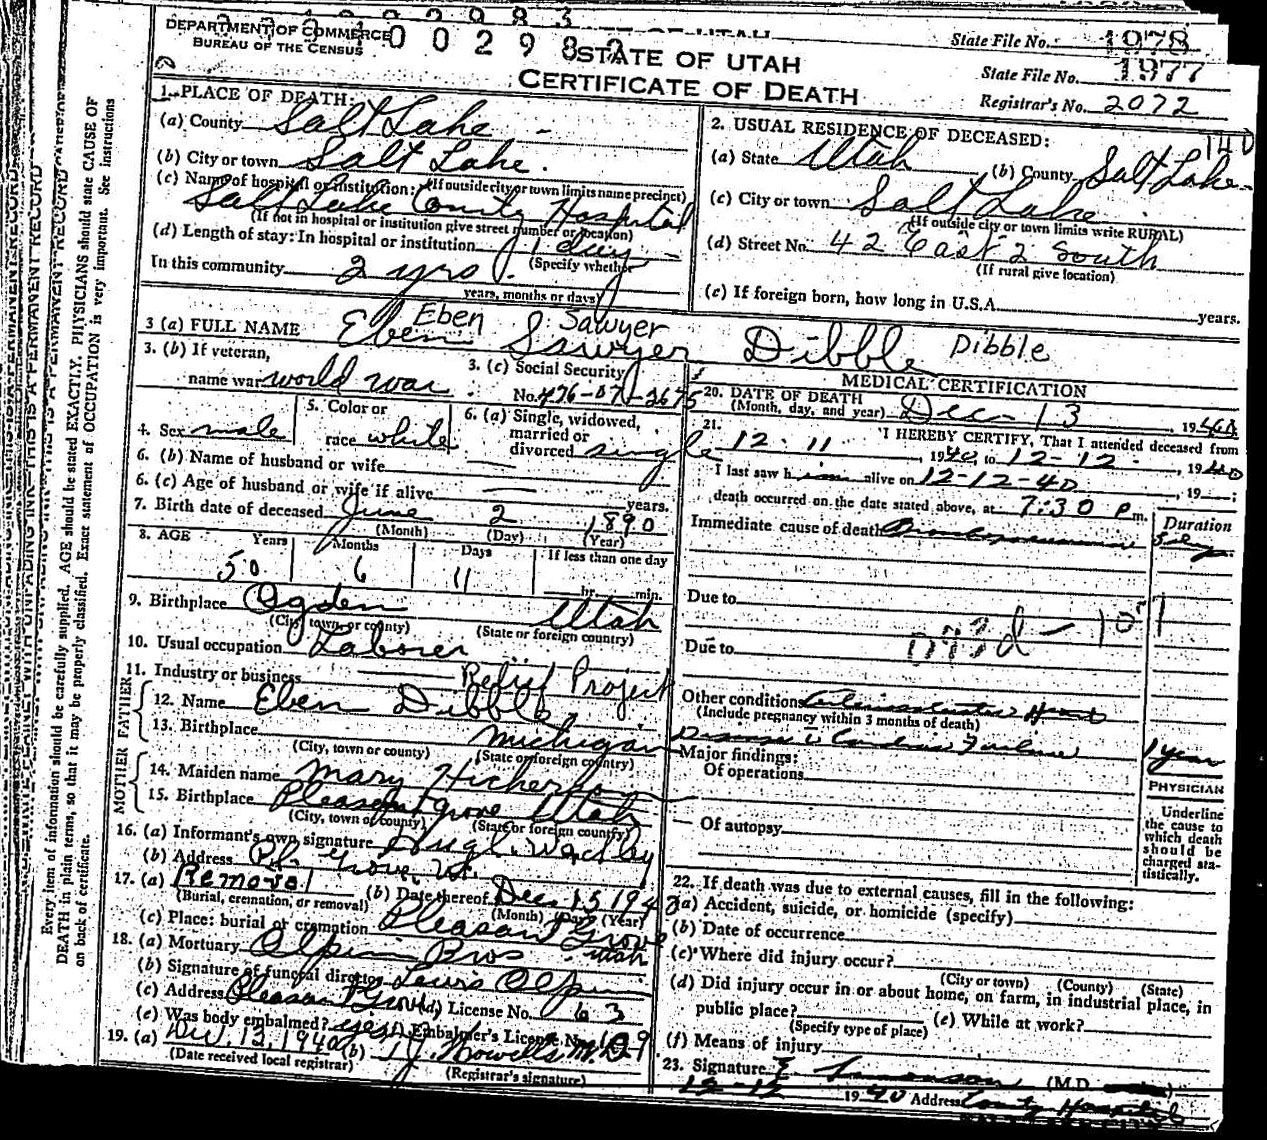 DEPARTMENT OF COMMERCE
BUREAU OF THE CENSUS
STATE OF UTAH
CERTIFICATE OF DEATH
State File No. 1978
State File No. 1977
Registrar's No. 2072
1. PLACE OF DEATH:
(a) County Salt Lake
(b) City or town Salt Lake
(If outside city or town limits name precinct)
(c) Name of hospital or institution:
Salt Lake County Hospital
(If not in hospital or institution give street number or location)
(d) Length of stay: In hospital or institution 1 day
(Specify whether
In this community 2 yrs
years, months or days)
2. USUAL RESIDENCE OF DECEASED:
140
(a) State Utah (b) County Salt Lake
(c) City or town Salt Lake
(If outside city or town limits write RURAL)
(d) Street No. 42 East 2 South
(If rural give location)
(e) If foreign born, how long in U.S.A. years.
Eben Sawyer Dibble
3 (a) FULL NAME Eben Sawyer Dibble
3. (b) If veteran, name war world war
3. (c) Social Security No. 476-07-2675
4. Sex male
5. Color or race white
6. (a) Single, widowed, married or divorced single
6. (b) Name of husband or wife
6. (c) Age of husband or wife if alive years.
7. Birth date of deceased June 2 1890
(Month) (Day) (Year)
8. AGE Years Months Days If less than one day
50 6 11 hr. min.
9. Birthplace Ogden Utah
(City, town or county) (State or foreign country)
10. Usual occupation Laborer
11. Industry or business Relief Project
FATHER
12. Name Eben Dibble
13. Birthplace Michigan
(City, town or county) (State or foreign country)
MOTHER
14. Maiden name Mary
15. Birthplace Pleasant Grove Utah
(City, town or county) (State or foreign country)
16. (a) Informant's own signature Hugh
(b) Address Pl. Grove, Ut.
17. (a) Removal (b) Date thereof Dec. 15 1940
(Burial, cremation, or removal) (Month) (Day) (Year)
(c) Place: burial or cremation Pleasant Grove Utah
18. (a) Mortuary Olpin Bros
(b) Signature of funeral director Lewis Olpin
(c) Address Pleasant Grove (d) License No. 63
(e) Was body embalmed? yes Embalmer's License No.
19. (a) Dec. 13, 1940 (b)
(Date received local registrar) (Registrar's signature)
MEDICAL CERTIFICATION
20. DATE OF DEATH
(Month, day, and year) Dec 13, 1940
21. I HEREBY CERTIFY, That I attended deceased from
12-11, 1940, to 12-12, 1940
I last saw him alive on 12-12-40, 19 ;
death occurred on the date stated above, at 7:30 P m.
Duration
Immediate cause of death Bronchopneumonia
Due to
Due to
Other conditions Arteriosclerotic Heart
(Include pregnancy within 3 months of death)
Disease Cardiac Failure 1 year
Major findings:
Of operations
Of autopsy
PHYSICIAN
Underline the cause to which death should be charged statistically.
22. If death was due to external causes, fill in the following:
(a) Accident, suicide, or homicide (specify)
(b) Date of occurrence
(c) Where did injury occur?
(City or town) (County) (State)
(d) Did injury occur in or about home, on farm, in industrial place, in
public place? (e) While at work?
(Specify type of place)
(f) Means of injury
23. Signature (M.D.
12-12 1940 Address County Hospital
Every item of information should be carefully supplied. AGE should be stated EXACTLY. PHYSICIANS should state CAUSE OF
DEATH in plain terms, so that it may be properly classified. Exact statement of OCCUPATION is very important. See instructions
on back of certificate.